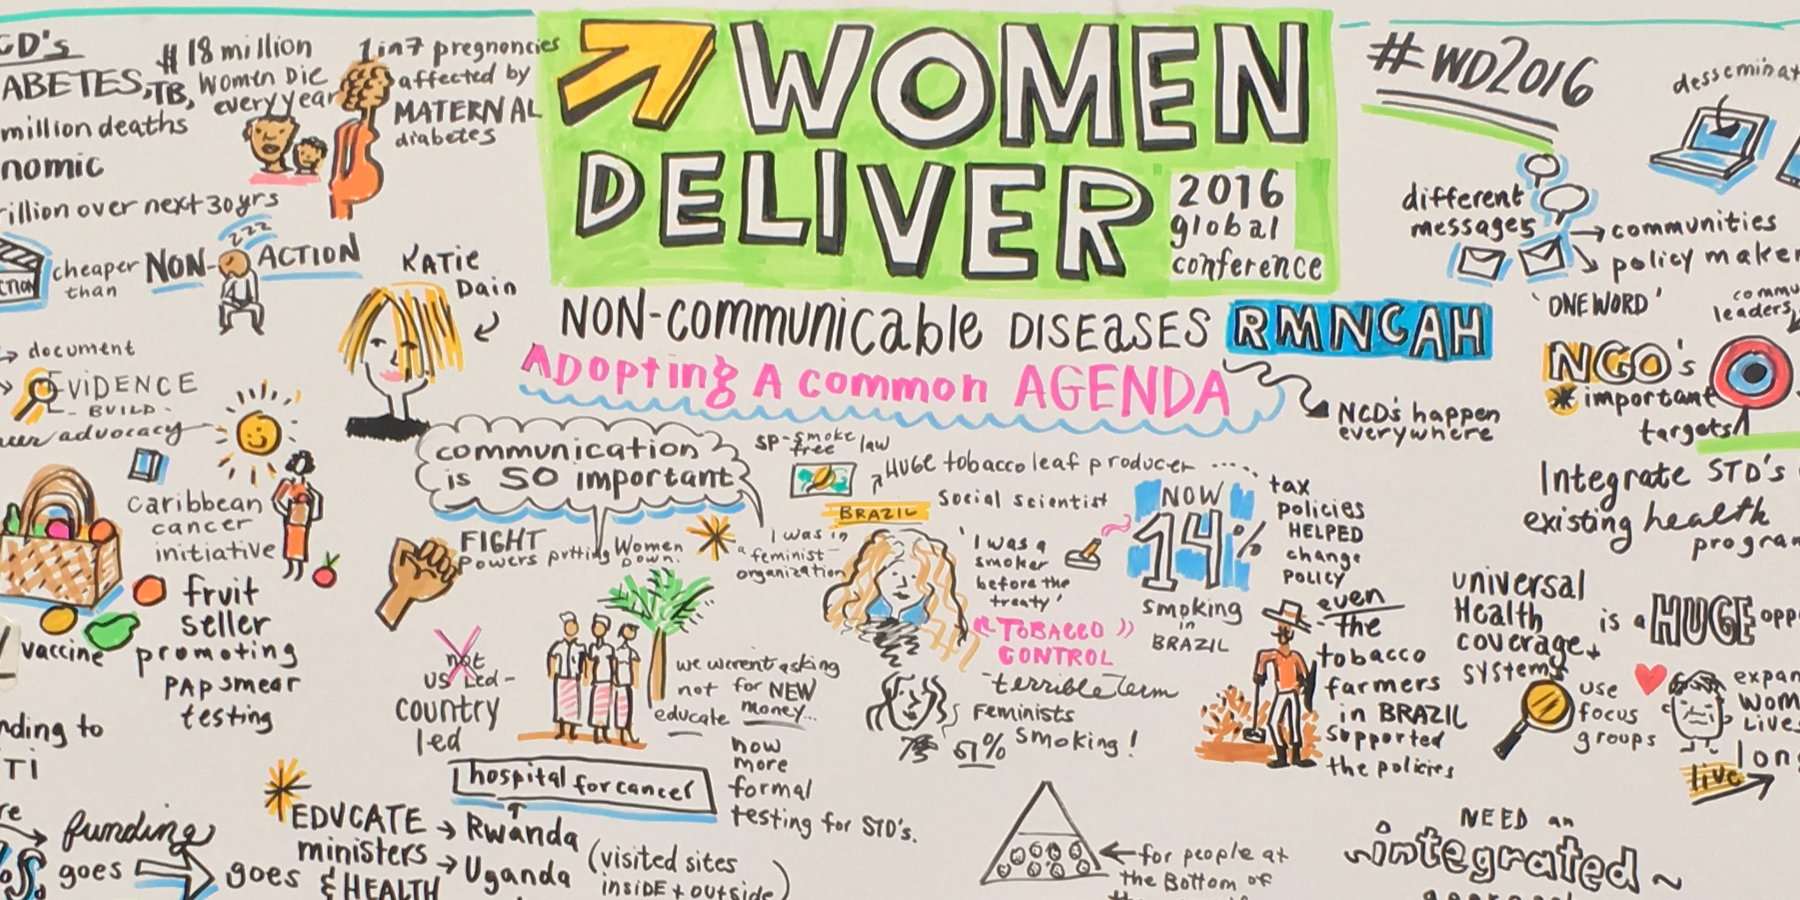 WOMEN
DELIVER
2016
global
conference
NON-communicable DISEASES RMNCAH
Adopting A common AGENDA
NCD's happen
everywhere
ABETES, TB,
million deaths
nomic
rillion over next 30 yrs
# 18 million
Women Die
every year
1 in 7 pregnancies
affected by
MATERNAL
diabetes
cheaper
than
NON-ACTION
zzz
KATIE
Dain
document
EVIDENCE
- BUILD -
advocacy
caribbean
cancer
initiative
fruit
seller
promoting
PAP smear
testing
vaccine
communication
is SO important
FIGHT
Powers putting Women
Down.
not
US Led -
country
led
we weren't asking
not for NEW
educate money...
now
more
formal
testing for STD's.
hospital for cancer
funding
goes
goes
EDUCATE
ministers
& HEALTH
Rwanda
Uganda
(visited sites
insiDE + outside)
SP-smoke free law
HUGE tobacco leaf producer ....
BRAZIL
Social scientist
I was in
a feminist
organization
'I was a
smoker
before the
treaty'
"TOBACCO"
CONTROL
terrible term
Feminists
Smoking!
NOW
14%
smoking
in
BRAZIL
tax
policies
HELPED
change
POLICY
even
the
tobacco
farmers
in BRAZIL
supported
the policies
for people at
the Bottom of
#WD2016
different
messages
communities
policy maker
'ONE WORD'
commu
leaders
NGO's
important
targets
Integrate STD's
existing health
progran
universal
Health
coverage +
systems
is a HUGE opp
use
focus
groups
expan
wom
Lives
long
live
NEED an
integrated